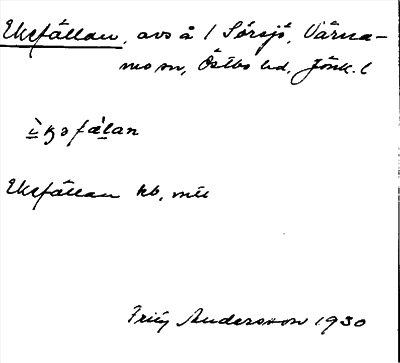 Ekefällan, avs å 1 Sörsjö, Värna-
mo sn, Östbo hd, Jönk. l
Ekefällan kb, mtl
Fritz Andersson 1930